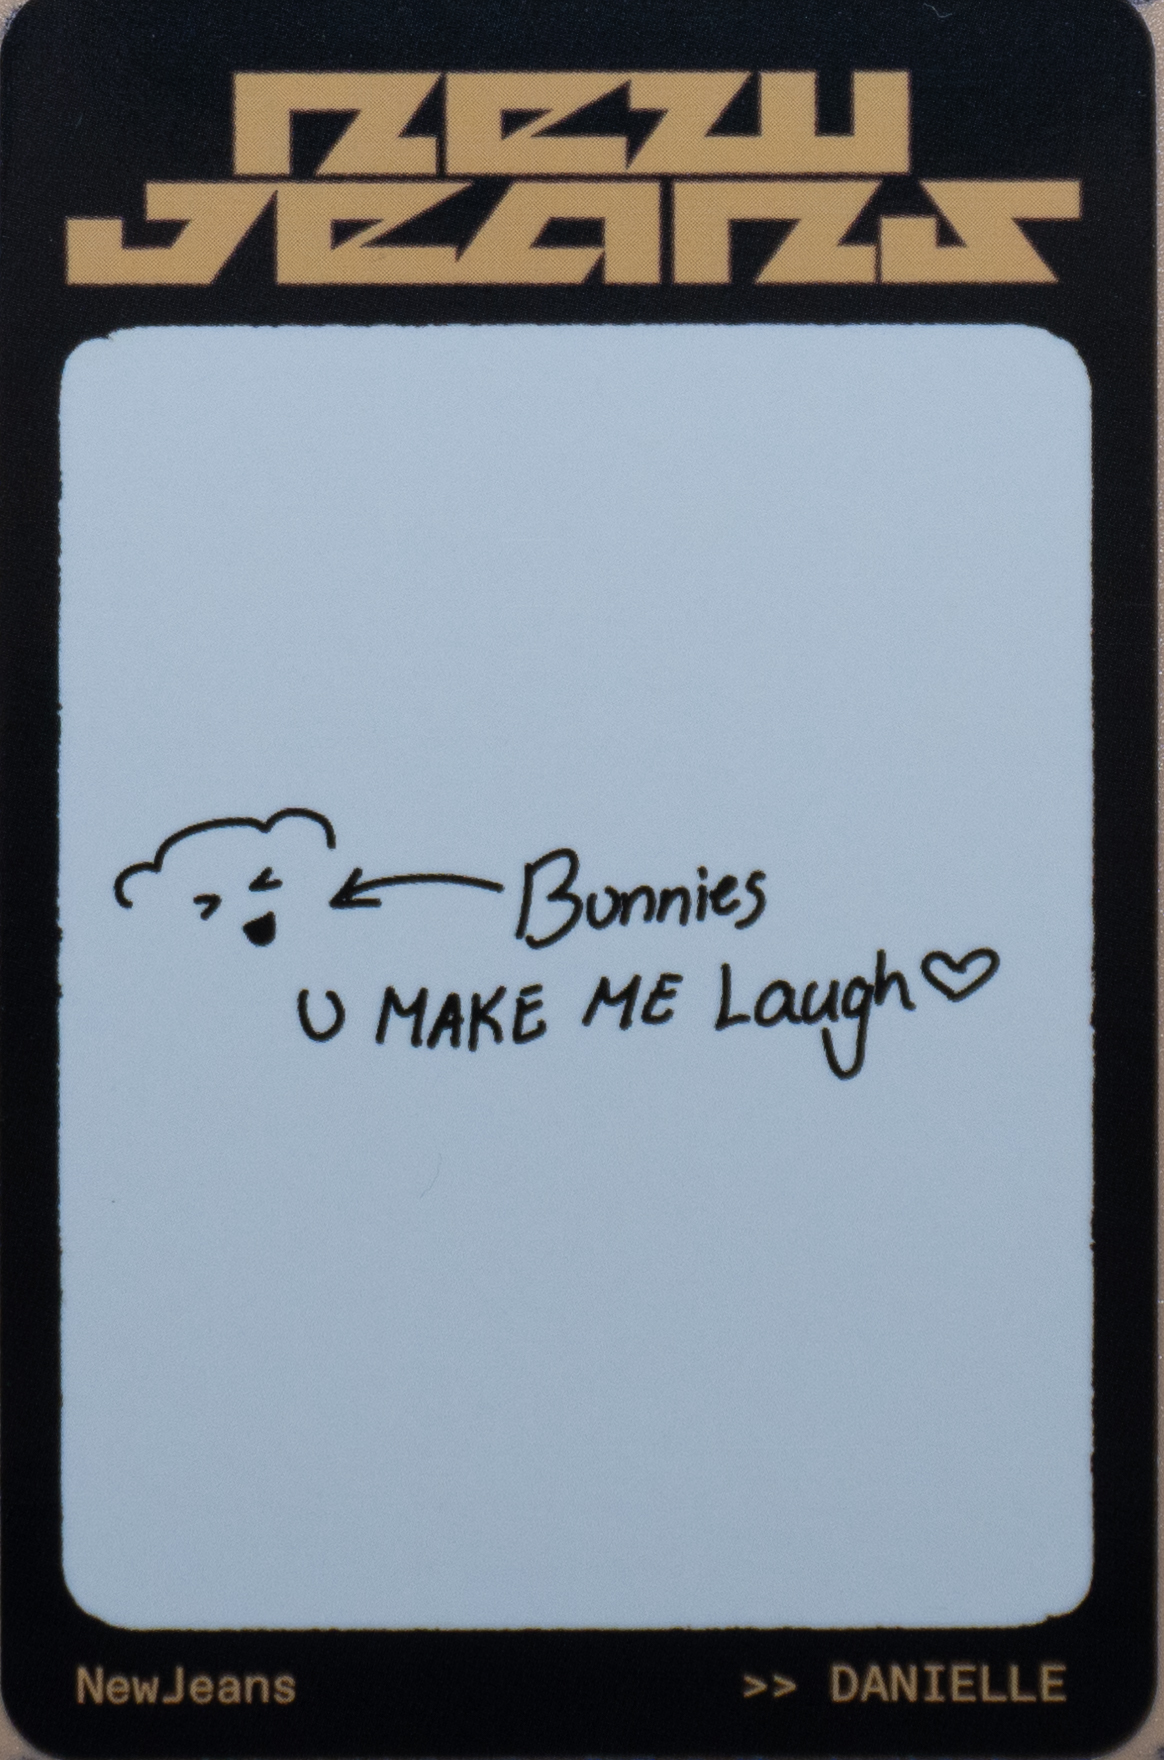 new
jeans
Bunnies
U MAKE ME Laugh♡
NewJeans
>> DANIELLE